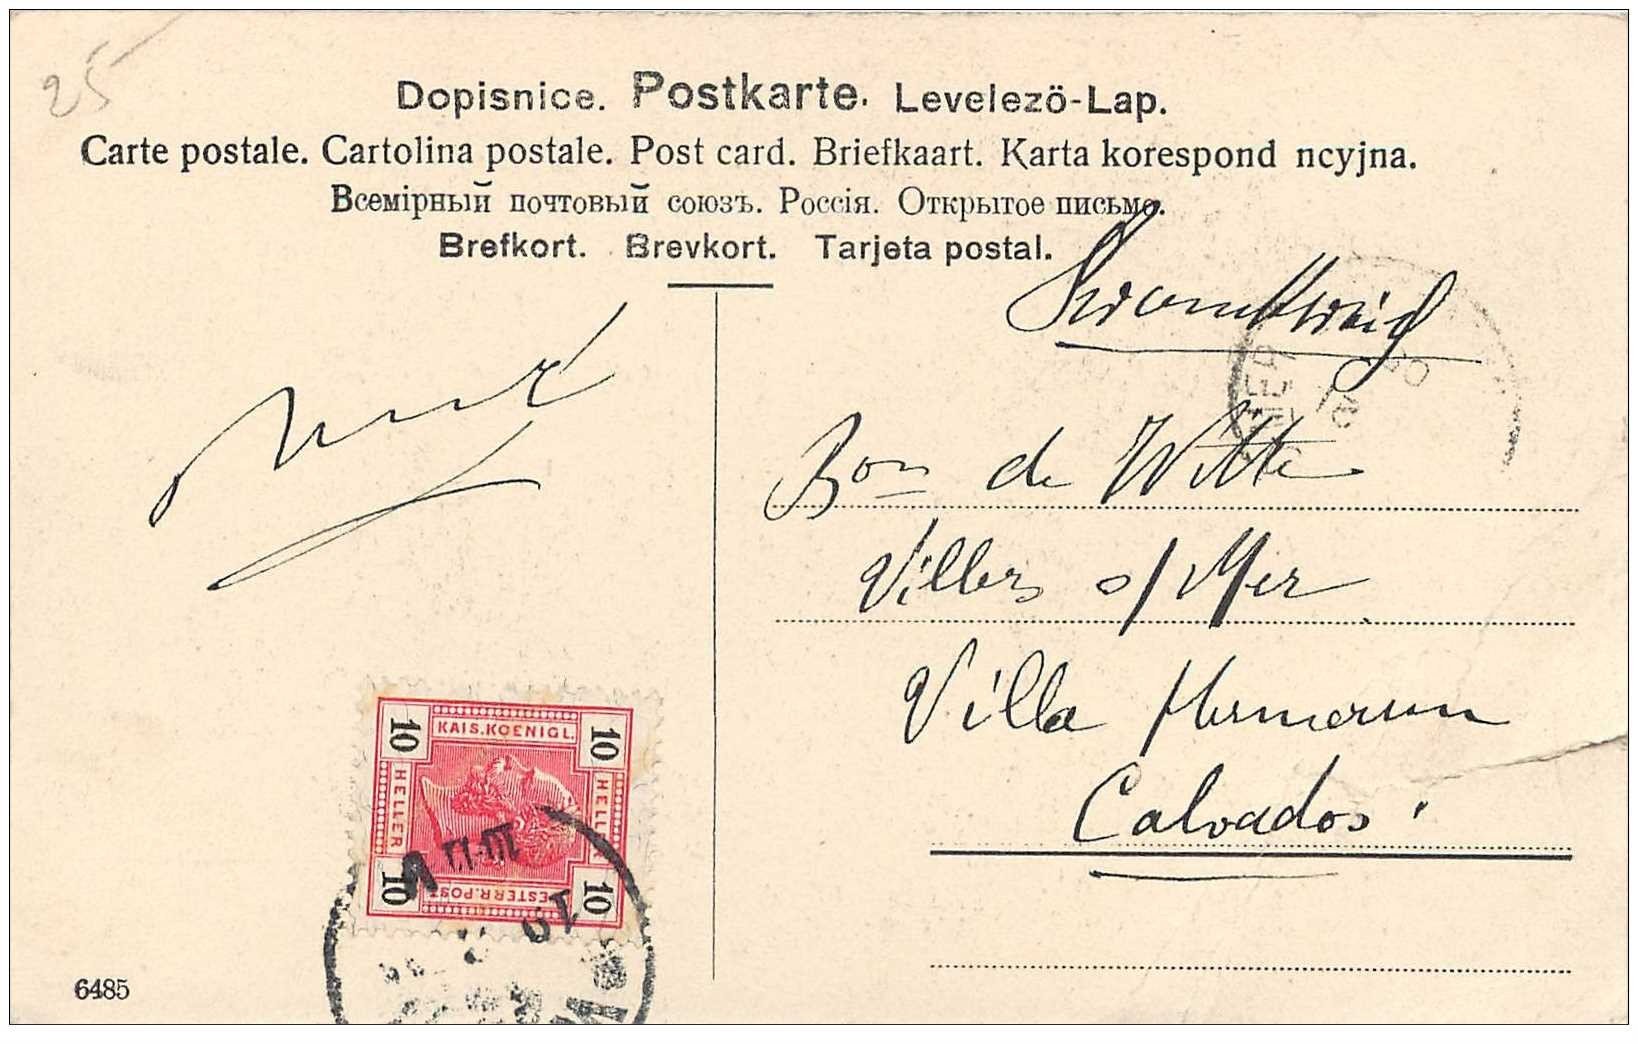 25
Dopisnice. Postkarte. Levelezö-Lap.
Carte postale. Cartolina postale. Post card. Briefkaart. Karta korespond ncyjna.
Всемірный почтовый союзъ. Россія. Открытое письмо.
Brefkort. Brevkort. Tarjeta postal.
Frankreich
Bon de Witte
Villers s/Mer
Villa Hermann
Calvados.
KAIS. KOENIGL.
10 HELLER 10
10 HELLER 10
ESTERR. POST
6485